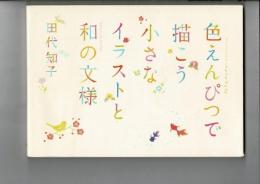 色えんぴつで
描こう
小さな
イラストと
和の文様
田代知子